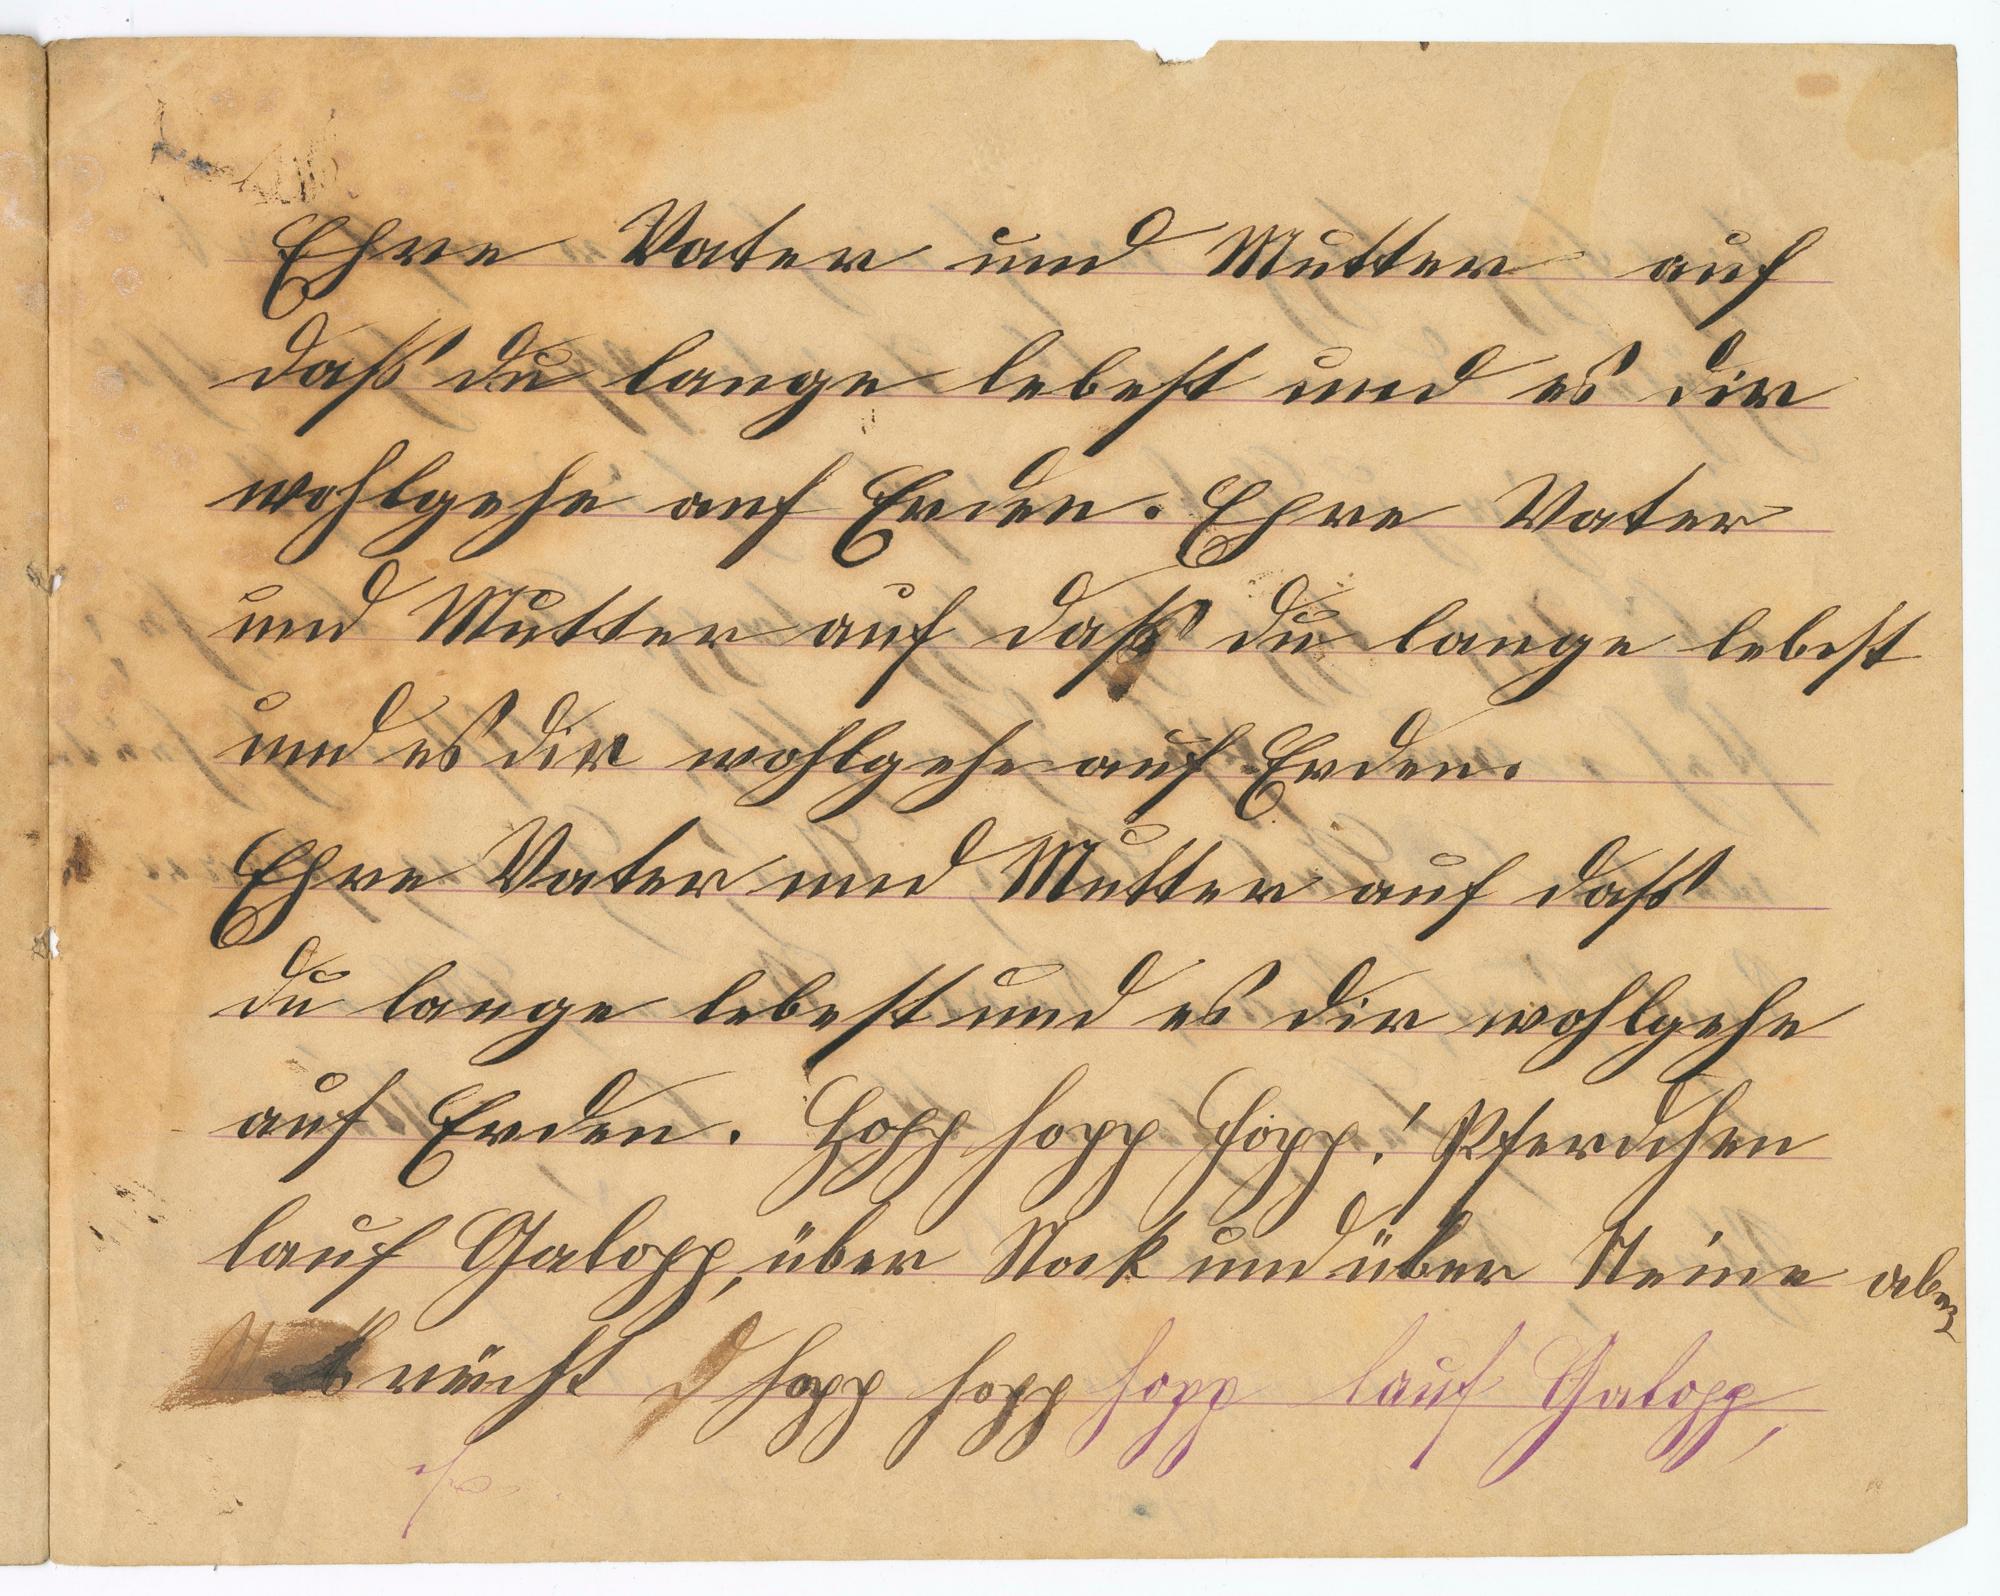 Ehre Vater und Mutter auf
daß du lange lebest und es dir
wohlgehe auf Erden. Ehre Vater
und Mutter auf daß du lange lebest
und es dir wohlgehe auf Erden.
Ehre Vater und Mutter auf daß
du lange lebest und es dir wohlgehe
auf Erden. Hopp hopp hopp! Pferdchen
lauf Galopp, über Stock und über Steine aber
hopp hopp hopp lauf Galopp,